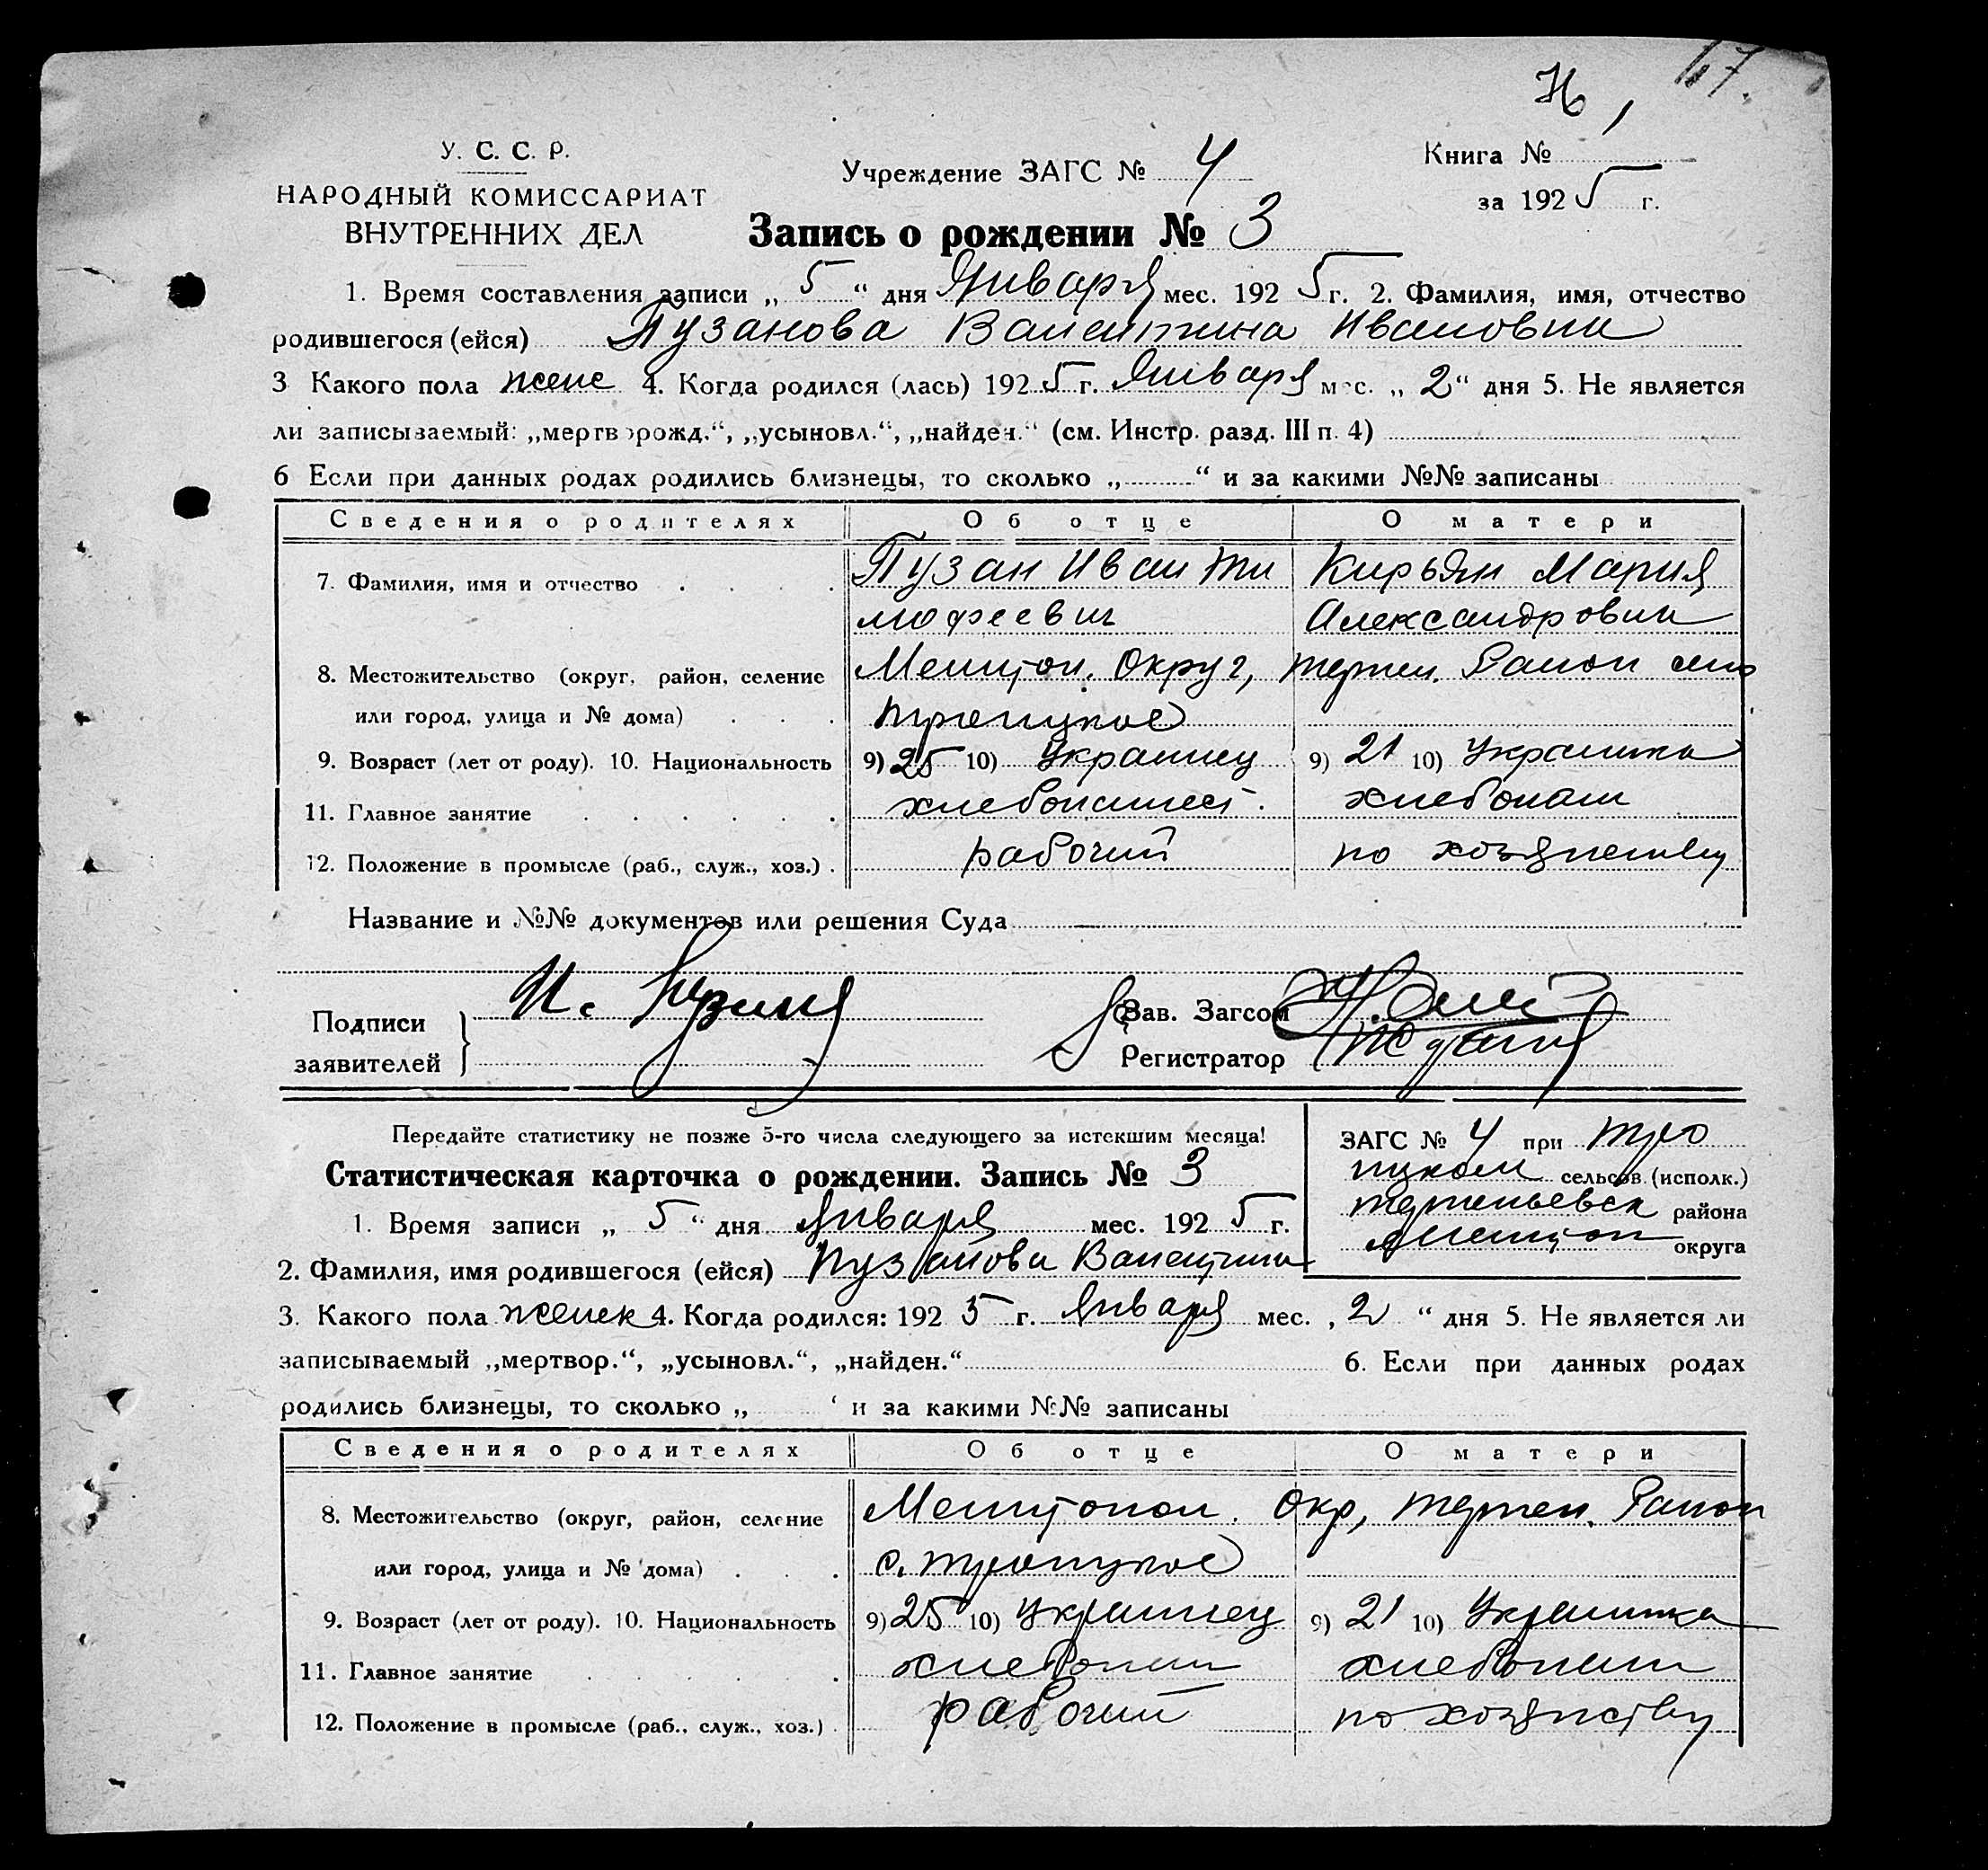 17.
У. С. С. Р.
НАРОДНЫЙ КОМИССАРИАТ
ВНУТРЕННИХ ДЕЛ
Учреждение ЗАГС № 4
Книга №
за 1925 г.
Запись о рождении № 3
1. Время составления записи „ 5 “ дня Января мес. 1925 г. 2. Фамилия, имя, отчество
родившегося (ейся) Пузанова Валентина Ивановни
3 Какого пола женс 4. Когда родился (лась) 1925 г. Января мес. „ 2 “ дня 5. Не является
ли записываемый: „мертворожд.“, „усыновл.“, „найден.“ (см. Инстр. разд. III п. 4)
6 Если при данных родах родились близнецы, то сколько „ “ и за какими №№ записаны
Сведения о родителях Об отце О матери
7. Фамилия, имя и отчество Пузан Иван Ти Кирьян Мария
мофеевич Александровни
8. Местожительство (округ, район, селение Мелитоп. Округ, терпен. Район село
или город, улица и № дома) троицкое
9. Возраст (лет от роду). 10. Национальность 9) 25 10) Украинец 9) 21 10) Украинка
11. Главное занятие хлебопашест. хлебопаш
12. Положение в промысле (раб., служ., хоз.) рабочий по хозяйству
Название и №№ документов или решения Суда
Подписи
заявителей
Зав. Загсом
Регистратор
Передайте статистику не позже 5-го числа следующего за истекшим месяца!
Статистическая карточка о рождении. Запись № 3
ЗАГС № 4 при тро
ицком сельсов. (исполк.)
терпеньевск района
Мелитоп округа
1. Время записи „ 5 “ дня Января мес. 1925 г.
2. Фамилия, имя родившегося (ейся) Пузанова Валентина
3. Какого пола женск 4. Когда родился: 1925 г. Января мес. , 2 “ дня 5. Не является ли
записываемый „мертвор.“, „усыновл.“, „найден.“ 6. Если при данных родах
родились близнецы, то сколько „ ‘ и за какими №№ записаны
Сведения о родителях Об отце О матери
8. Местожительство (округ, район, селение Мелитопол. Окр, терпен. Район
или город, улица и № дома) с. троицкое
9. Возраст (лет от роду). 10. Национальность 9) 25 10) Украинец 9) 21 10) Украинка
11. Главное занятие хлебопаш хлебопаш
12. Положение в промысле (раб., служ., хоз.) рабочий по хозяйству